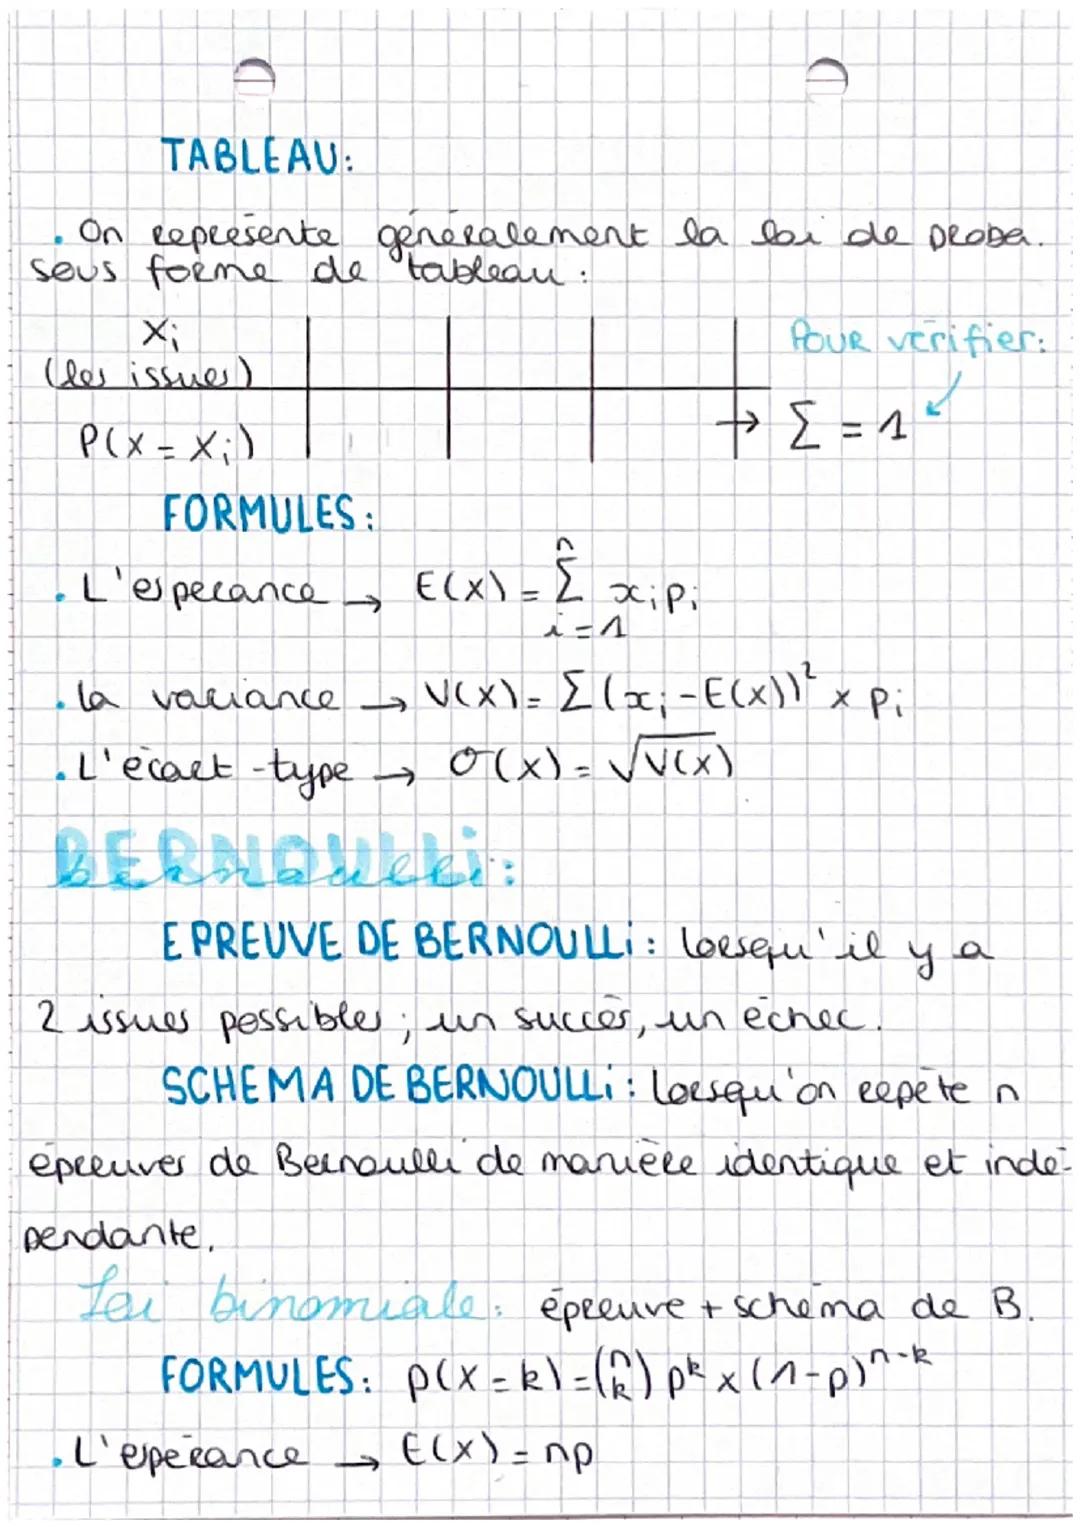 TABLEAU:
. On représente généralement la loi de proba.
sous forme de tableau :
Xi
(les issues)
Pour vérifier:
P(X = Xi)
→ Σ = 1
FORMULES:
. L'esperance → E(X) = Σ xi pi
n
i = 1
. la variance → V(X) = Σ (xi - E(X))² x pi
. L'écart-type → σ(X) = √V(X)
BERNOULLi:
bernoulli:
EPREUVE DE BERNOULLi : lorsqu'il y a
2 issues possibles ; un succès, un échec.
SCHEMA DE BERNOULLi : lorsqu'on repète n
épreuves de Bernoulli de manière identique et indé-
pendante.
Loi binomiale : épreuve + schéma de B.
FORMULES: p(X = k) = (n k) p^k x (1-p)^n-k
. L'epérance → E(X) = np